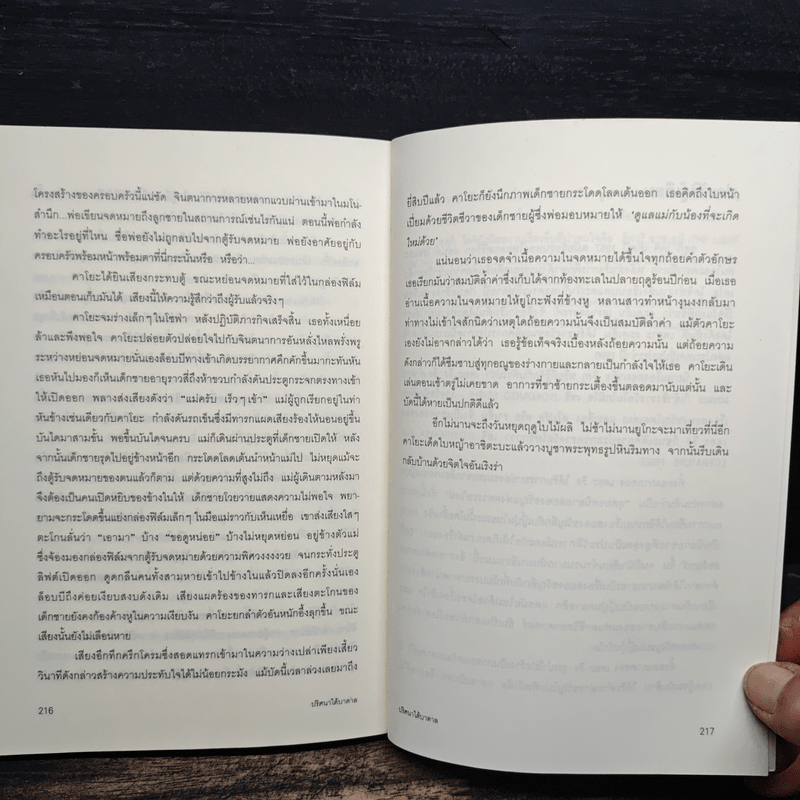 โครงสร้างของครอบครัวนี้แน่ชัด จินตนาการหลายหลากแวบผ่านเข้ามาในมโน-
สำนึก...พ่อเขียนจดหมายถึงลูกชายในสถานการณ์เช่นไรกันแน่ ตอนนี้พ่อกำลัง
ทำอะไรอยู่ที่ไหน ชื่อพ่อยังไม่ถูกลบไปจากตู้รับจดหมาย พ่อยังอาศัยอยู่กับ
ครอบครัวพร้อมหน้าพร้อมตาที่นี่กระนั้นหรือ หรือว่า...
คาโยะได้ยินเสียงกระทบตู้ ขณะหย่อนจดหมายที่ใส่ไว้ในกล่องฟิล์ม
เหมือนตอนเก็บมันได้ เสียงนี้ให้ความรู้สึกว่าถึงผู้รับแล้วจริงๆ
คาโยะจมร่างเล็กๆ ในโซฟา หลังปฏิบัติภารกิจเสร็จสิ้น เธอทั้งเหนื่อย
ล้าและพึงพอใจ คาโยะปล่อยตัวปล่อยใจไปกับจินตนาการอันหลั่งไหลพรั่งพรู
ระหว่างหย่อนจดหมายนั่นเองล็อบบีทางเข้าเกิดบรรยากาศคึกคักขึ้นมากะทันหัน
เธอหันไปมองก็เห็นเด็กชายอายุราวสี่ถึงห้าขวบกำลังดันประตูกระจกตรงทางเข้า
ให้เปิดออก พลางส่งเสียงดังว่า “แม่ครับ เร็วๆ เข้า” แม่ผู้ถูกเรียกอยู่ในท่า
หันข้างเช่นเดียวกับคาโยะ กำลังดันรถเข็นซึ่งมีทารกแผดเสียงร้องไห้นอนอยู่ขึ้น
บันไดมาสามขั้น พอขึ้นบันไดจนครบ แม่ก็เดินผ่านประตูที่เด็กชายเปิดให้ หลัง
จากนั้นเด็กชายรุดไปอยู่ข้างหน้าอีก กระโดดโลดเต้นนำหน้าแม่ไป ไม่หยุดแม้จะ
ถึงตู้รับจดหมายของตนแล้วก็ตาม แต่ด้วยความที่สูงไม่ถึง แม่ผู้เดินตามหลังมา
จึงต้องเป็นคนเปิดหยิบของข้างในให้ เด็กชายโวยวายแสดงความไม่พอใจ พยา-
ยามจะกระโดดขึ้นแย่งกล่องฟิล์มเล็กๆ ในมือแม่ราวกับเห็นเหยื่อ เขาส่งเสียงใสๆ
ตะโกนลั่นว่า “เอามา” บ้าง “ขอดูหน่อย” บ้างไม่หยุดหย่อน อยู่ข้างตัวแม่
ซึ่งจ้องมองกล่องฟิล์มจากตู้รับจดหมายด้วยความพิศวงงงงวย จนกระทั่งประตู
ลิฟต์เปิดออก ดูดกลืนคนทั้งสามหายเข้าไปข้างในแล้วปิดลงอีกครั้งนั่นเอง
ล็อบบีถึงค่อยเงียบสงบดังเดิม เสียงแผดร้องของทารกและเสียงตะโกนของ
เด็กชายยังคงก้องค้างหูในความเงียบงัน คาโยะยกลำตัวอันหนักอึ้งลุกขึ้น ขณะ
เสียงนั้นยังไม่เลือนหาย
เสียงอึกทึกครึกโครมซึ่งสอดแทรกเข้ามาในความว่างเปล่าเพียงเสี้ยว
วินาทีดังกล่าวสร้างความประทับใจได้ไม่น้อยกระมัง แม้บัดนี้เวลาล่วงเลยมาถึง
216
ปริศนาใต้บาดาล
ยี่สิบปีแล้ว คาโยะก็ยังนึกภาพเด็กชายกระโดดโลดเต้นออก เธอคิดถึงใบหน้า
เปี่ยมด้วยชีวิตชีวาของเด็กชายผู้ซึ่งพ่อมอบหมายให้ ‘ดูแลแม่กับน้องที่จะเกิด
ใหม่ด้วย’
แน่นอนว่าเธอจดจำเนื้อความในจดหมายได้ขึ้นใจทุกถ้อยคำตัวอักษร
เธอเรียกมันว่าสมบัติล้ำค่าซึ่งเก็บได้จากท้องทะเลในปลายฤดูร้อนปีก่อน เมื่อเธอ
อ่านเนื้อความในจดหมายให้ยูโกะฟังที่ข้างหู หลานสาวทำหน้างุนงงกลับมา
ท่าทางไม่เข้าใจสักนิดว่าเหตุใดถ้อยความนั้นจึงเป็นสมบัติล้ำค่า แม้ตัวคาโยะ
เองยังไม่อาจกล่าวได้ว่า เธอรู้ข้อเท็จจริงเบื้องหลังถ้อยความนั้น แต่ถ้อยความ
ดังกล่าวก็ได้ซึมซาบสู่ทุกอณูของร่างกายและกลายเป็นกำลังใจให้เธอ คาโยะเดิน
เล่นตอนเช้าตรู่ไม่เคยขาด อาการที่ขาซ้ายกระเตื้องขึ้นตลอดมานับแต่นั้น และ
บัดนี้ได้หายเป็นปกติดีแล้ว
อีกไม่นานจะถึงวันหยุดฤดูใบไม้ผลิ ไม่ช้าไม่นานยูโกะจะมาเที่ยวที่นี่อีก
คาโยะเด็ดใบหญ้าอาชิตะบะแล้ววางบูชาพระพุทธรูปหินริมทาง จากนั้นรีบเดิน
กลับบ้านด้วยจิตใจอันเริงร่า
ปริศนาใต้บาดาล
217